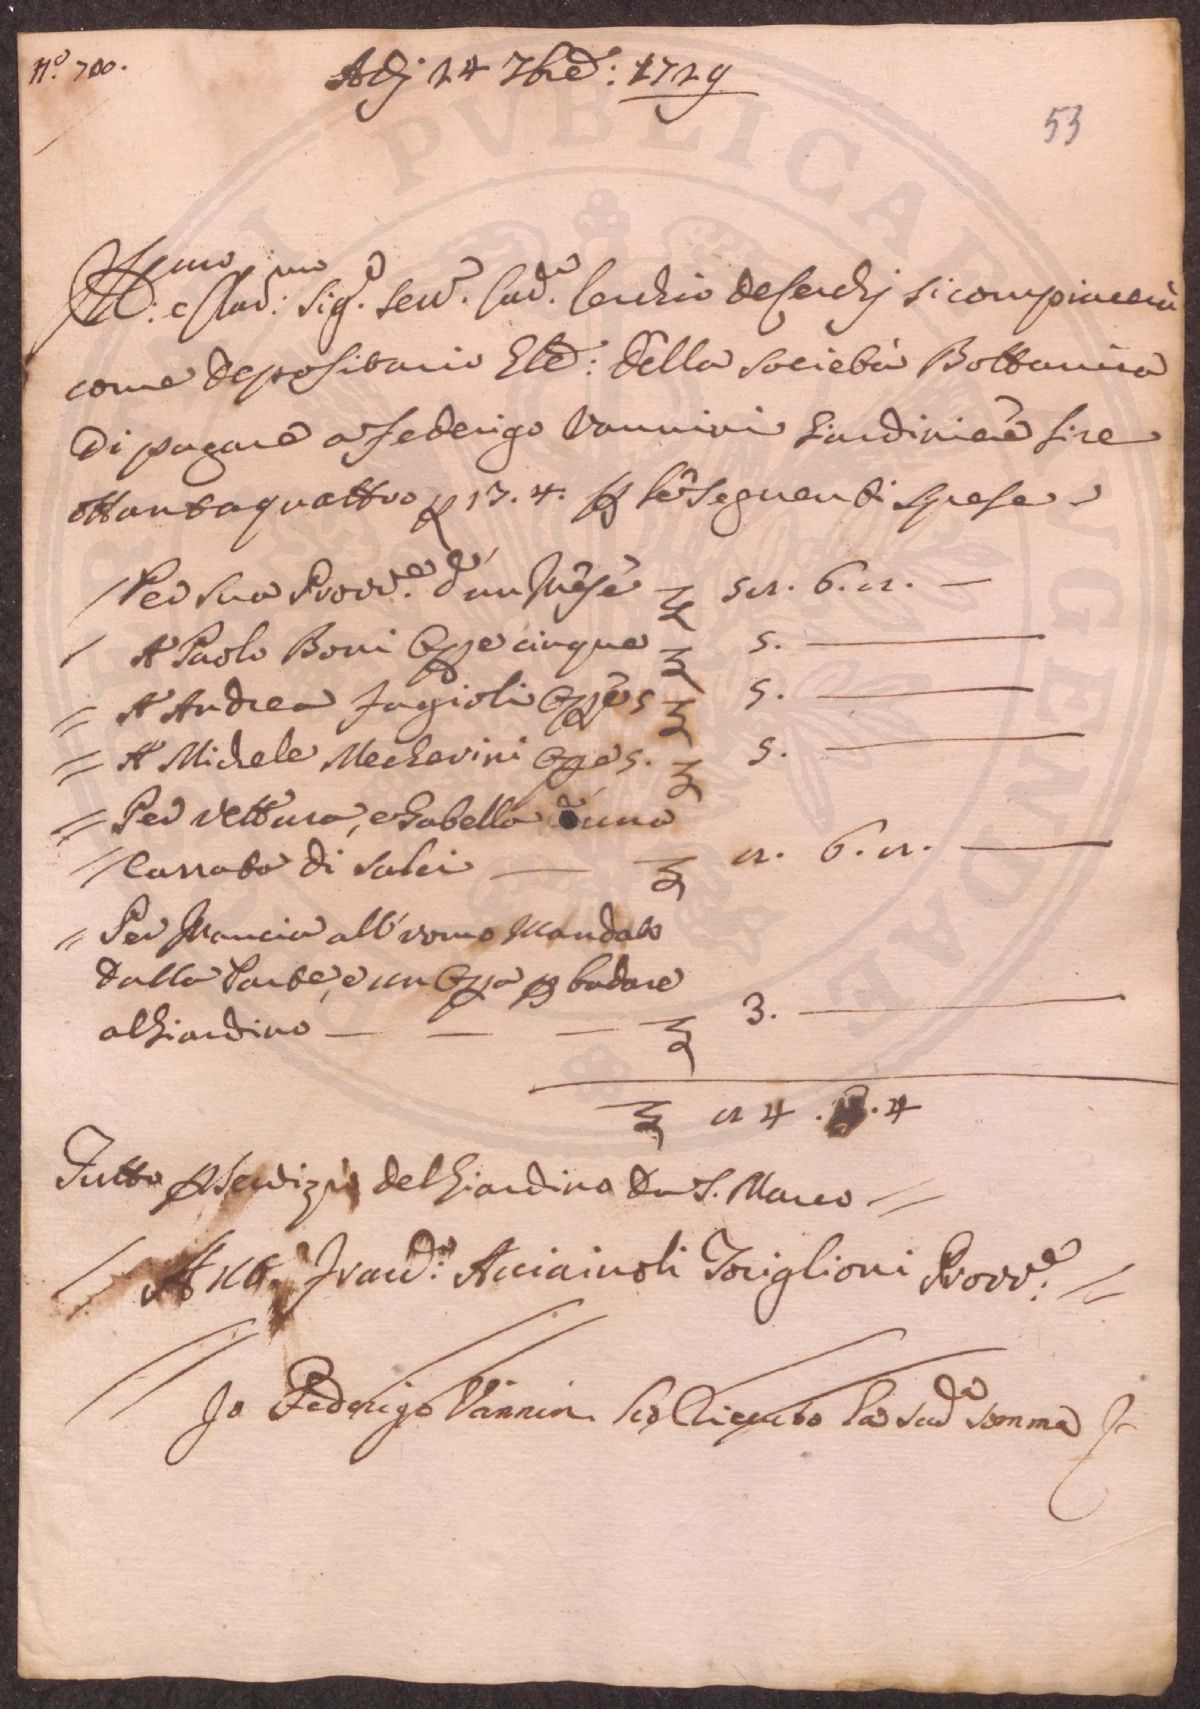 N.o 700.
Adj 24 7bre: 1729
53
Ill:mo e Clar:mo Sig.r Sen.r Cav.e Cerchio de Cerchj si compiacerà
come depositario Ele: della Società Bottanica
di pagare a Federigo Vannini Giardiniere lire
ottantaquattro 13.4. p le seguenti spese
Per sua Provv.e d'un Mese
A Paolo Boni Opre cinque 5.
A Andrea Fagioli Opre 5 5.
A Michele Mecherini Opre 5. 5.
Per vettura, e Gabella d'una
Carrata di salci
Per Mancia all'uomo Mandato
dalla Parte, e un Opra p badare
al Giardino 3.
4
Tutto p servizio del Giardino da S. Marco
Franc.o Acciaiuoli Toriglioni Provv.e
Io Federigo Vannini ho Riceuto la sud.a somma